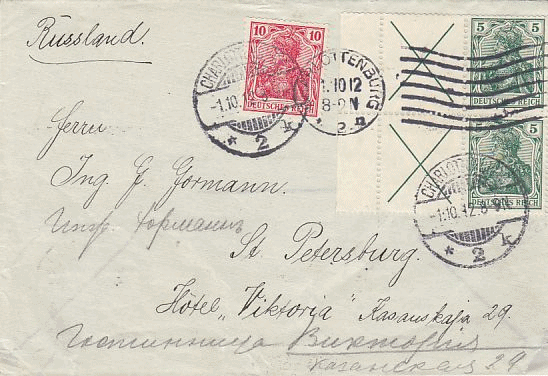 Russland.
10
DEUTSCHES REICH
5
DEUTSCHES REICH
5
DEUTSCHES REICH
CHARLOTTENBURG
1.10.12
8-9N
* 2 k
-1.10.12.8-9N
* 2 k
Herrn
Ing. G. Gormann.
Инж. Горманнъ
St. Petersburg.
Hôtel "Viktoria" Kasanskaja 29.
Гостинница Виктория
Казанская 29